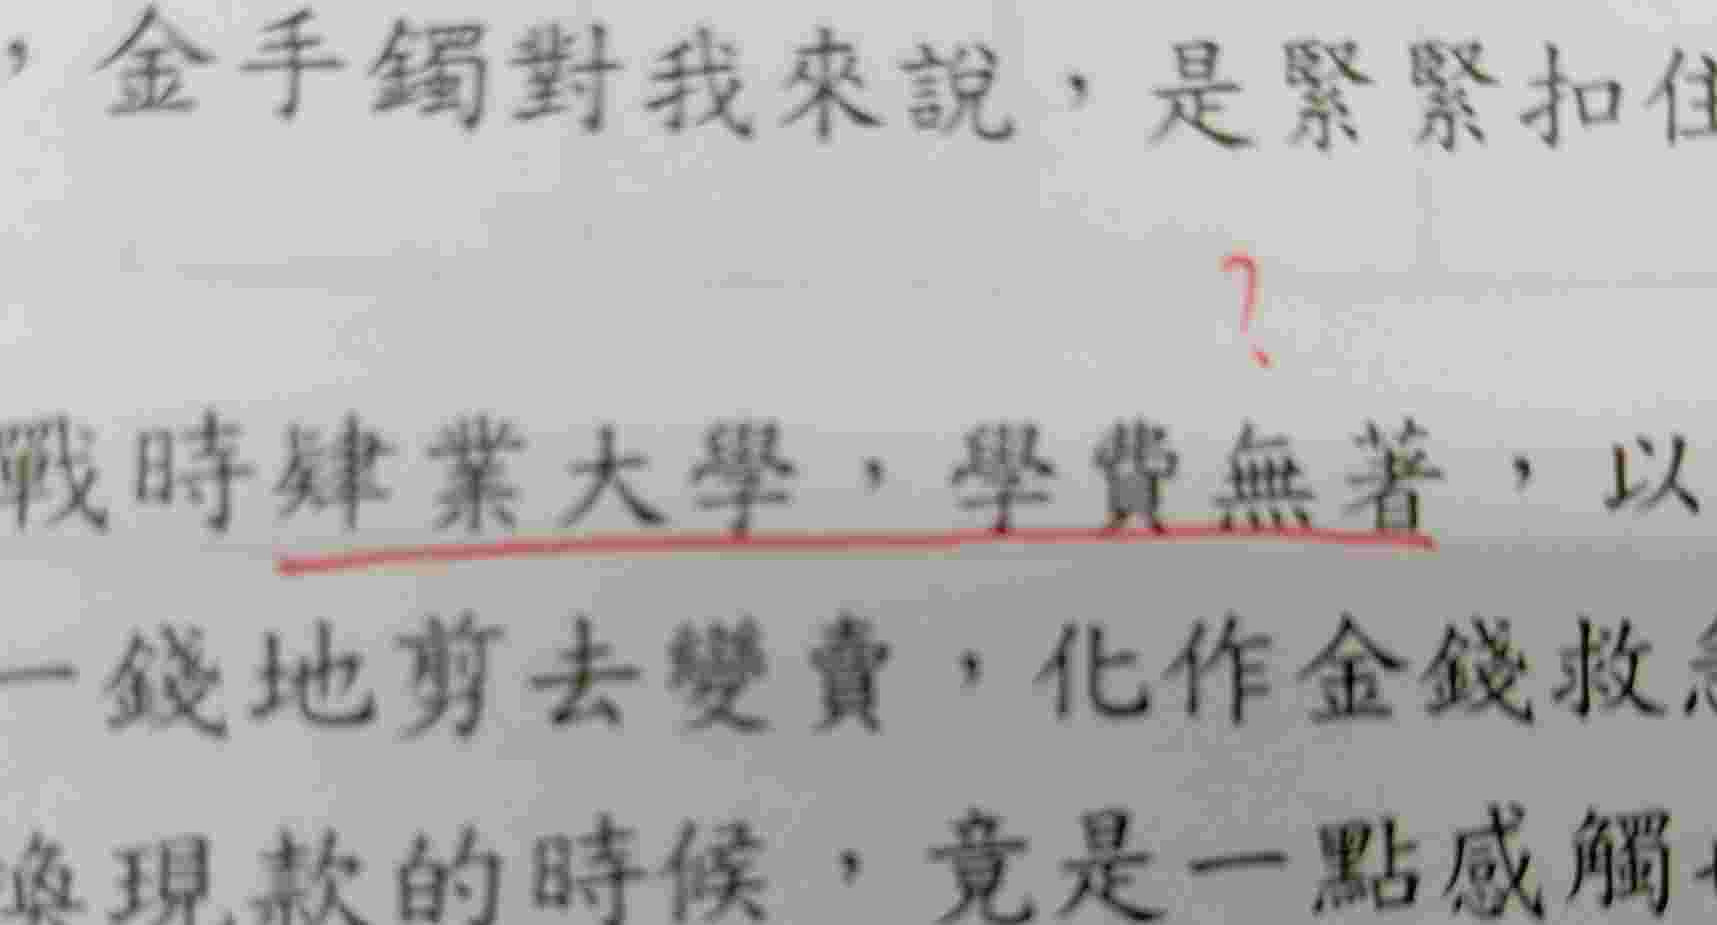 ，金手鐲對我來說，是緊緊扣住
?
戰時肄業大學，學費無著，以
一錢地剪去變賣，化作金錢救急
換現款的時候，竟是一點感觸也